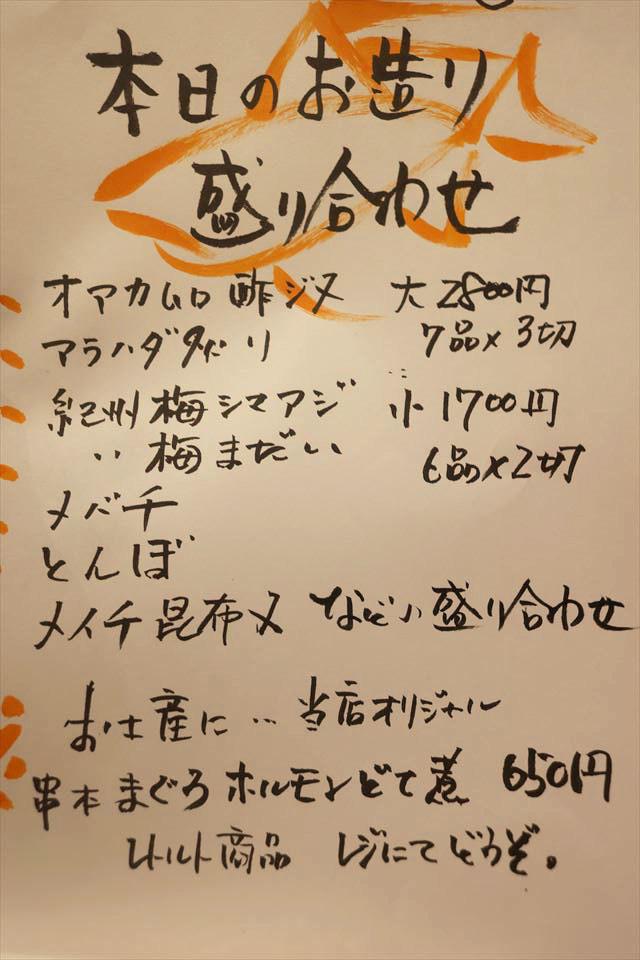 本日のお造り
盛り合わせ
オアカムロ 酢ジメ 大 2800円
アラハダ タドリ 7品×3切
紀州 梅シマアジ 小 1700円
〃 梅まだい 6品×2切
メバチ
とんぼ
メイチ昆布〆 などの盛り合わせ
お土産に… 当店オリジナル
串本まぐろホルモンどて煮 650円
レトルト商品 レジにてどうぞ。